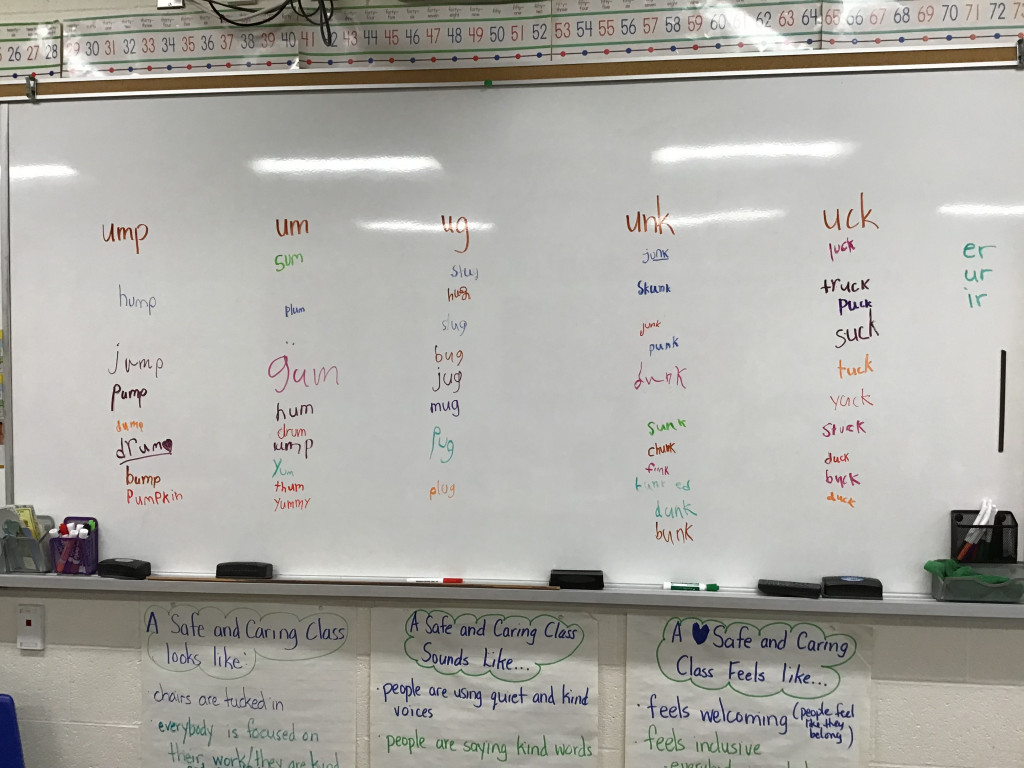 26 27 28
29 30 31 32 33 34 35 36 37 38 39 40 41 42 43 44 45 46 47 48 49 50 51 52 53 54 55 56 57 58 59 60 61 62 63 64 65 66 67 68 69 70 71 72
ump
hump
jump
Pump
dump
drump
bump
Pumpkin
um
sum
plum
gum
hum
drum
ump
Yum
thum
Yummy
ug
slug
hug
slug
bug
jug
mug
Pug
plug
unk
junk
skunk
junk
punk
dunk
sunk
chunk
funk
dunk
bunk
uck
luck
truck
Puck
suck
tuck
yuck
stuck
duck
buck
duck
er
ur
ir
A Safe and Caring Class
looks like:
chairs are tucked in
everybody is focused on
their work/they are kind
A Safe and Caring Class
Sounds Like...
· people are using quiet and kind
voices
· people are saying kind words
A ♥ Safe and Caring
Class Feels like...
· feels welcoming (people feel
like they
belong)
· feels inclusive